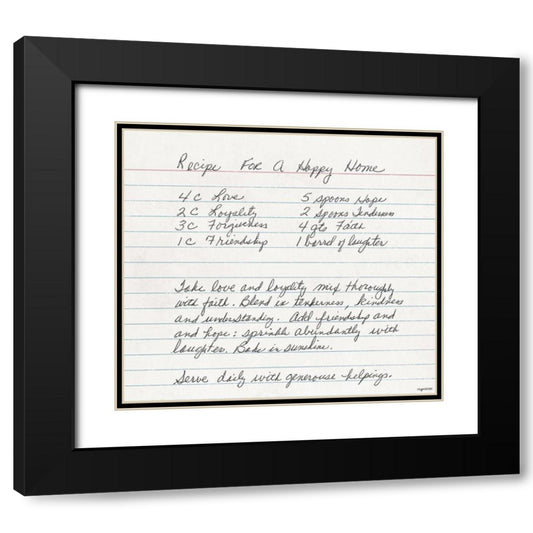 Recipe For A Happy Home
4 c Love 5 spoons Hope
2 c Loyality 2 spoons Tenderness
3 c Forgiveness 4 qts Faith
1 c Friendship 1 barrel of laughter
Take love and loyality mix thoroughly
with faith. Blend in tenderness, kindness
and understanding. Add friendship and
and hope: sprinkle abundantly with
laughter. Bake in sunshine.
Serve daily with generouse helpings.